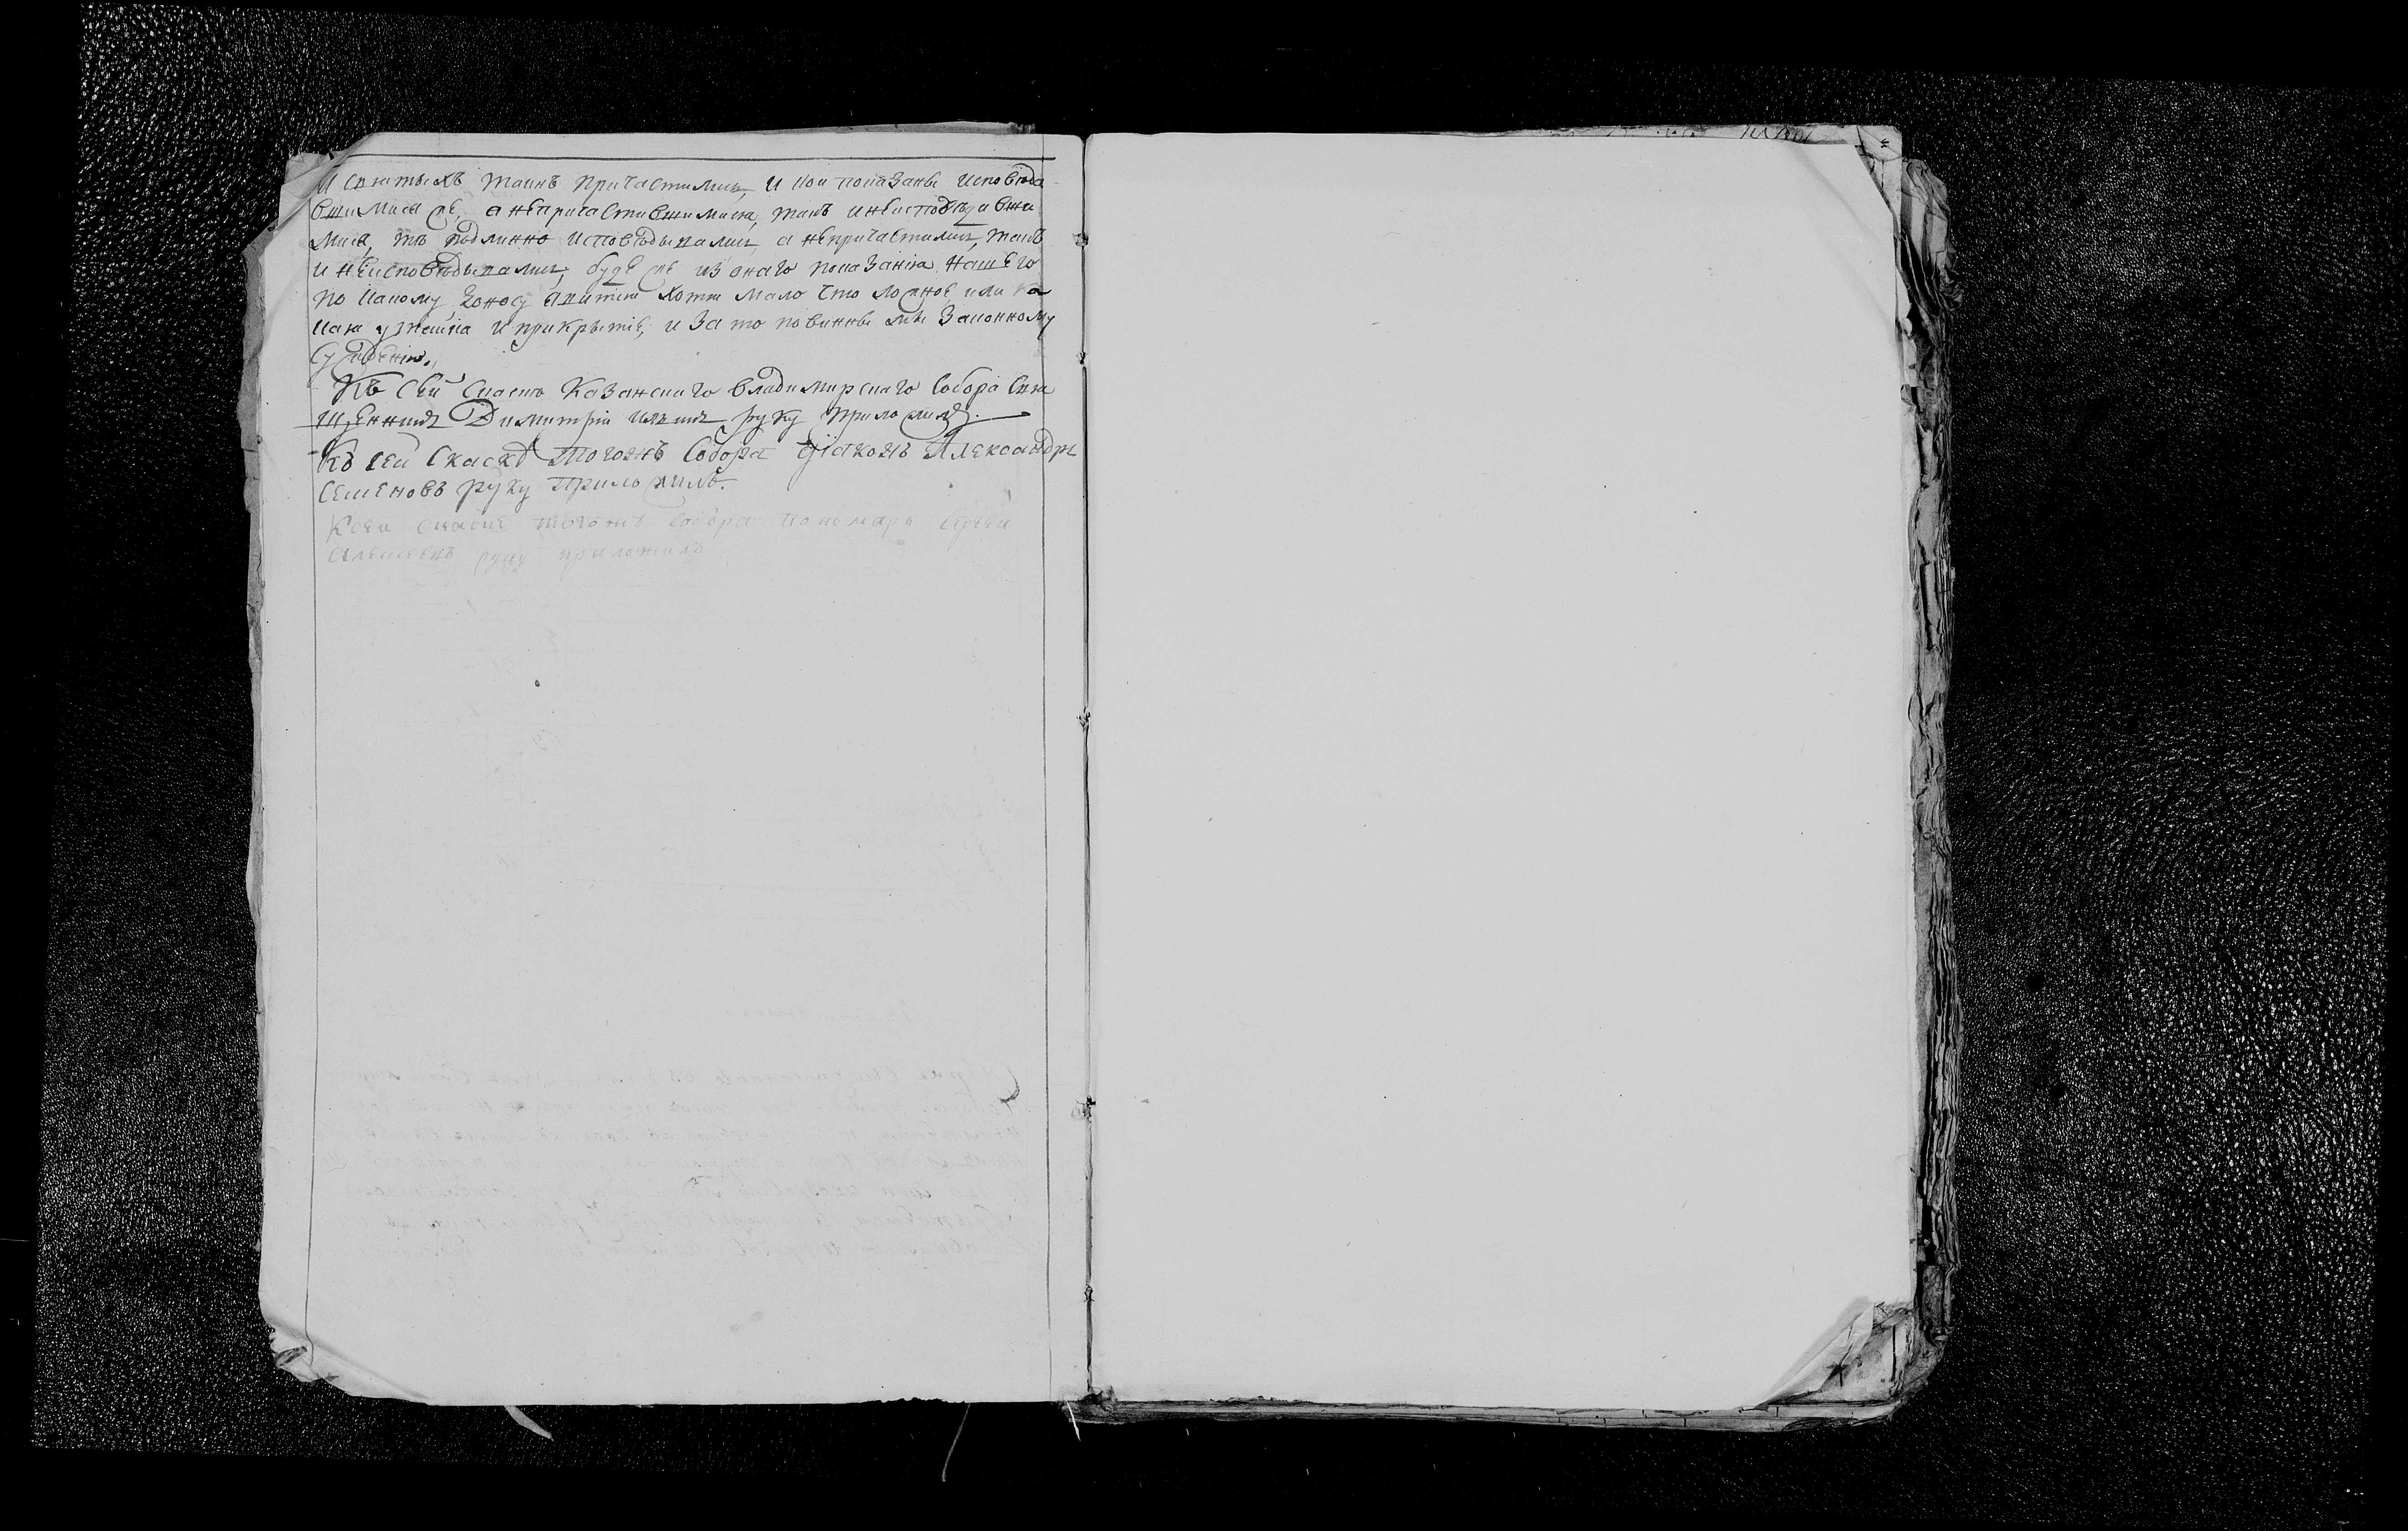 И святыхъ таинъ причастились, и кои показаны исповѣда
вшимися же, а непричастившимися, такъ и неисповѣдавши
мися, тѣ подлинно исповѣдывались, а непричастились, такъ
и неисповѣдывались, буде же из онаго показанія нашего
по какому доносу явится хотя мало что ложное, или ка
кая утайка и прикрытіе, и за то повинны мы законному
суждению.
Къ сей скаскѣ Казанскаго Владимирскаго Собора Свя
щенникъ Димитрій руку приложилъ.
Къ сей скаскѣ тогожъ Собора діаконъ Александръ
Семеновъ руку приложилъ.
К сеи скаске тогожъ Собора пономарь Сергей
Алексеевъ руку приложилъ